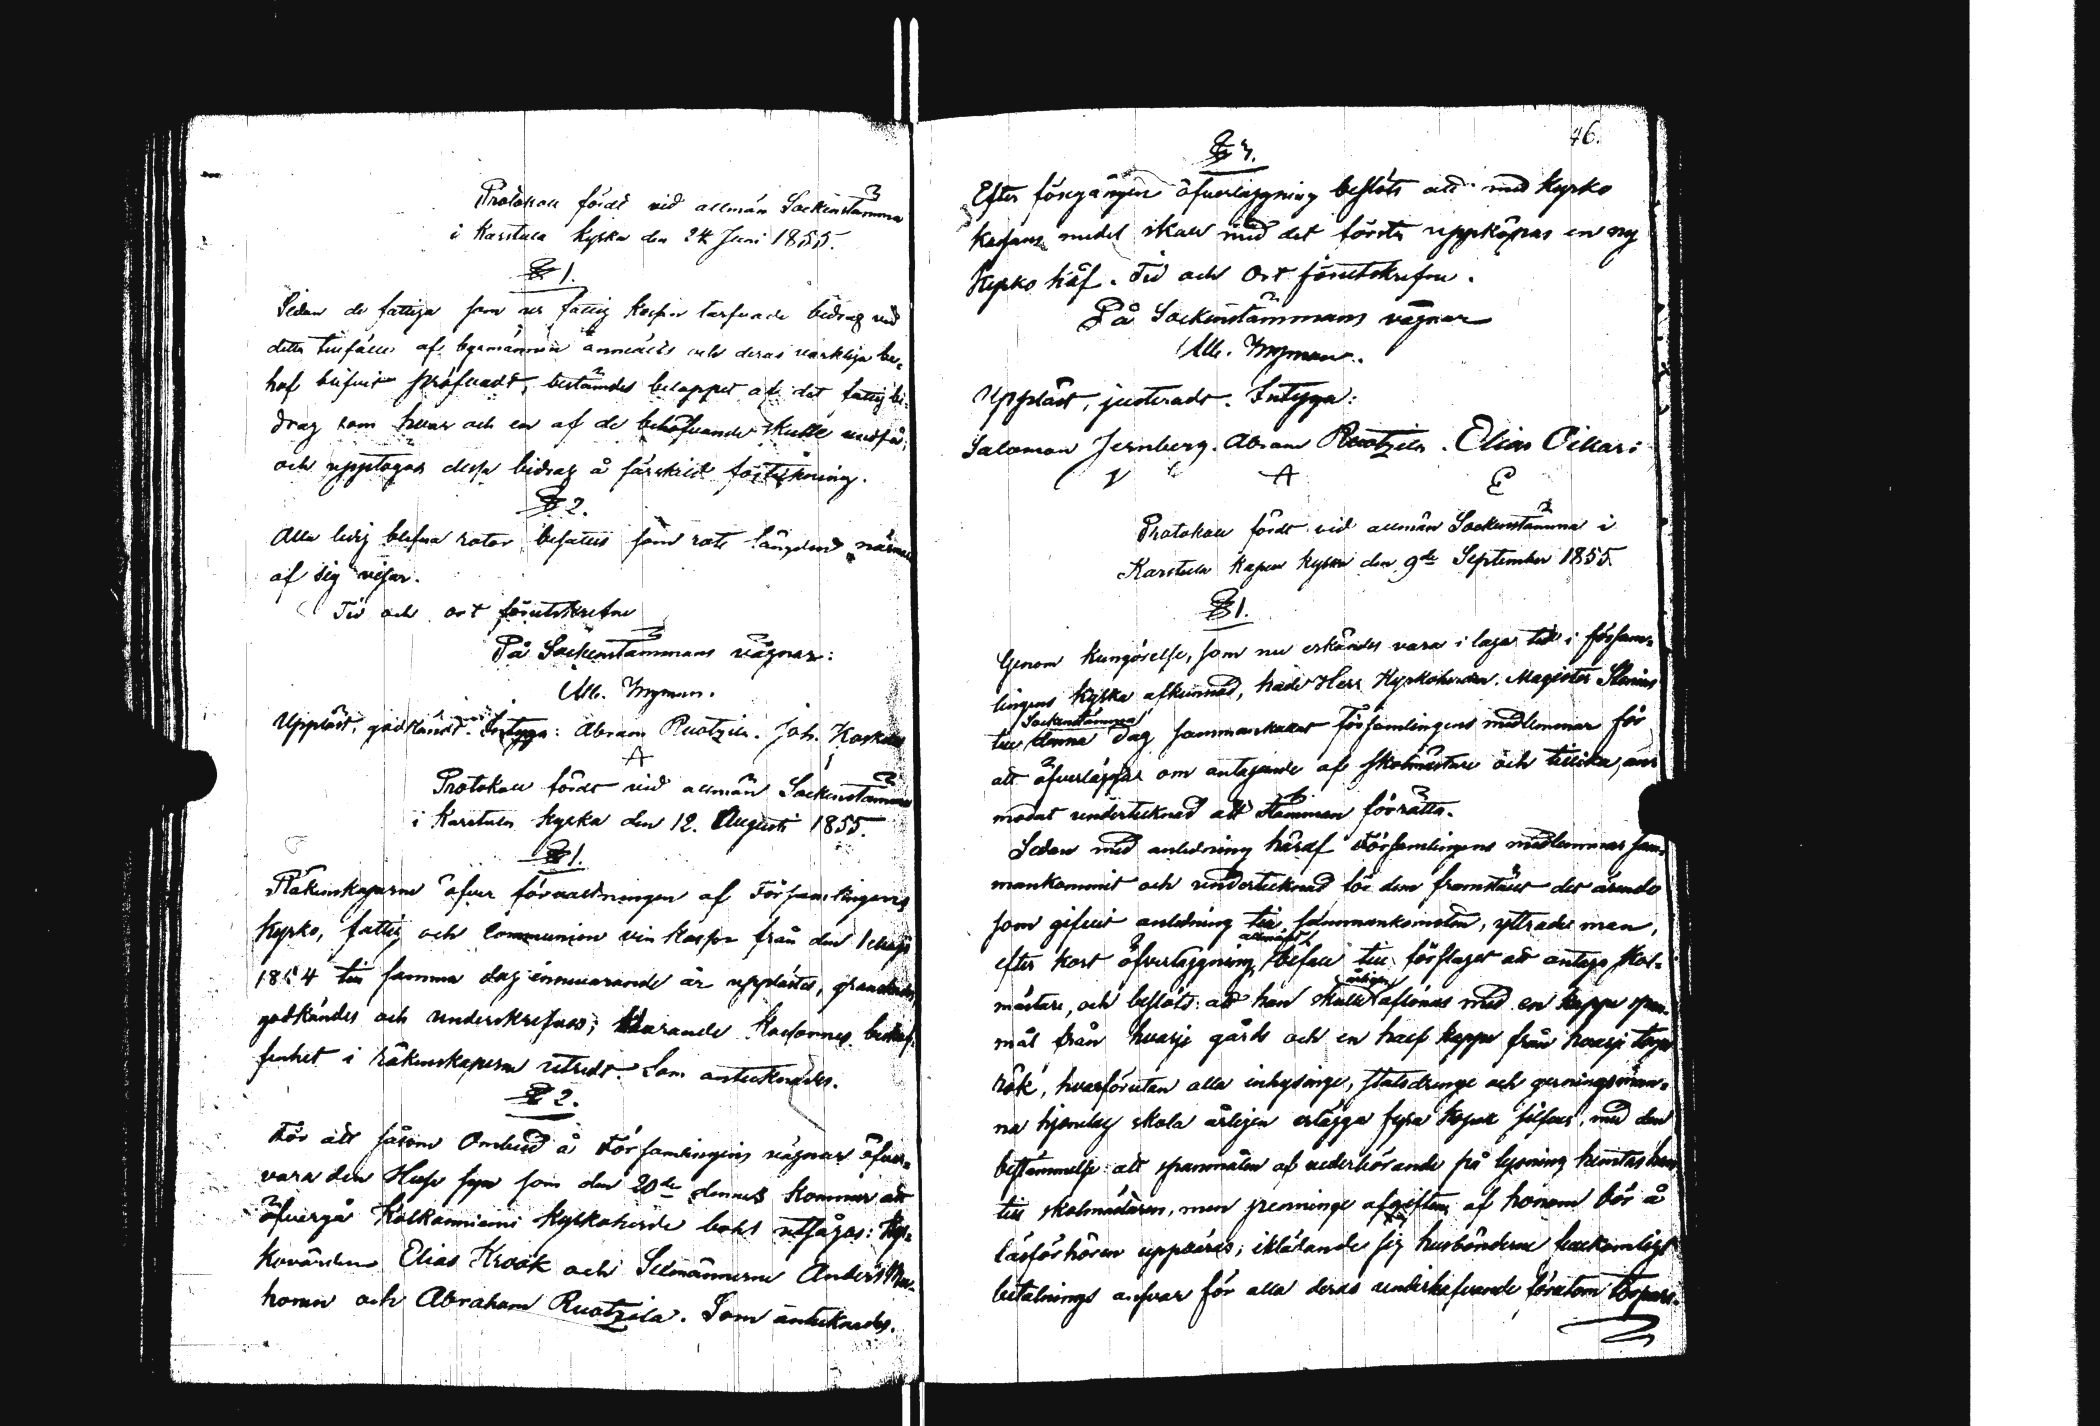 Protokoll fördt vid allmän Sockenstämma
i Karstula Kyrka den 24 Juni 1855.
§ 1.
Sedan de fattiga som ur fattig Kassan tarfvade bidrag vid
detta tillfälle af byamännen anmälts och deras verkliga be-
hof blifvit pröfvadt, bestämdes beloppet af det fattig bi-
drag som hvar och en af de behöfvande skulle undfå,
och upptogos dessa bidrag å särskild förtekning.
§ 2.
Alla ledig blefna rotor besattes som rote längden närmare
af sig visar.
Tid och ort förutskrefne
På Sockenstämmans vägnar:
Alb. Nyman.
Uppläst, godkändt. Intyga: Abram Ruotzila. Joh. Koskela
A
Protokoll fördt vid allmän Sockenstämma
i Karstula Kyrka den 12. Augusti 1855.
§ 1.
Räkenskaperne öfver förvaltningen af Församlingens
Kyrko, fattig och Communion vin Kassor från den 1 Maji
1854 till samma dag innevarande år upplästes, granskades,
godkändes och underskrefvos; varande Kassornes beskaf-
fenhet i räkenskaperne utredt. Som antecknades.
§ 2.
För att såsom Ombud å Församlingens vägnar öfver-
vara den Huse syn som den 20de dennes kommer att
öfvergå Kolkanniemi Kyrkoherde bohl utsågos: Kyr-
kovärden Elias Krook och Sexmännerne Anders
honen och Abraham Ruotzila. Som antecknades.
46.
§ 3.
Efter föregången öfverläggning beslöts att med Kyrko
Kassans medel skall med det första uppköpas en ny
Kyrko håf. Tid och Ort förutskrefne.
På Sockenstämmans vägnar
Alb. Nyman.
Uppläst, justeradt. Intyga:
Salomon Jernberg. Abram Ruotzila. Elias Oikari
A E
Protokoll fördt vid allmän Sockenstämma i
Karstula Kapell Kyrka den 9de September 1855
§ 1.
Genom kungörelse, som nu erkändes vara i laga tid i försam-
lingens kyrka afkunnad, hade Herr Kyrkoherden, Magister Stenius
Sockenstämma
till denna dag sammankallat Församlingens medlemmar för
att öfverlägga om antagande af skolmästare och tillika an-
modat undertecknad att stämman förrätta.
Sedan med anledning häraf Församlingens medlemmar sam-
mankommit och undertecknad för dem framställt det ärende
som gifvit anledning till sammankomsten, yttrade man,
allmänt
efter kort öfverläggning, bifall till förslaget att antaga Skol-
årligen
mästare, och beslöts: att han skulle aflönas med en kappe span-
mål från hvarje gårds och en half kappe från hvarje torpe
rök, hvarförutan alla inhysinge, statsdrenge och gerningsmän-
na hjonelag skola årligen erlägga fyra kopek silfver, med den
bestämmelse: att spannmålen af vederbörande på lysning hemtas hem
till skolmästaren, men penninge afgiften af honom bör å
läsförhören uppbäras; iklädande sig husbönderne huekomligt
betalnings ansvar för alla deras underhafvande förutom torpare-